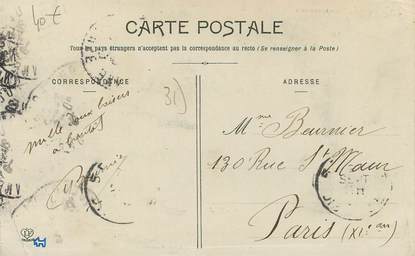 40€
CARTE POSTALE
Tous les pays étrangers n'acceptent pas la correspondance au recto (Se renseigner à la Poste)
CORRESPONDANCE
ADRESSE
31)
mille doux baisers
à bientôt
Mme Beurnier
130 Rue St Maur
Paris (XIe arr)